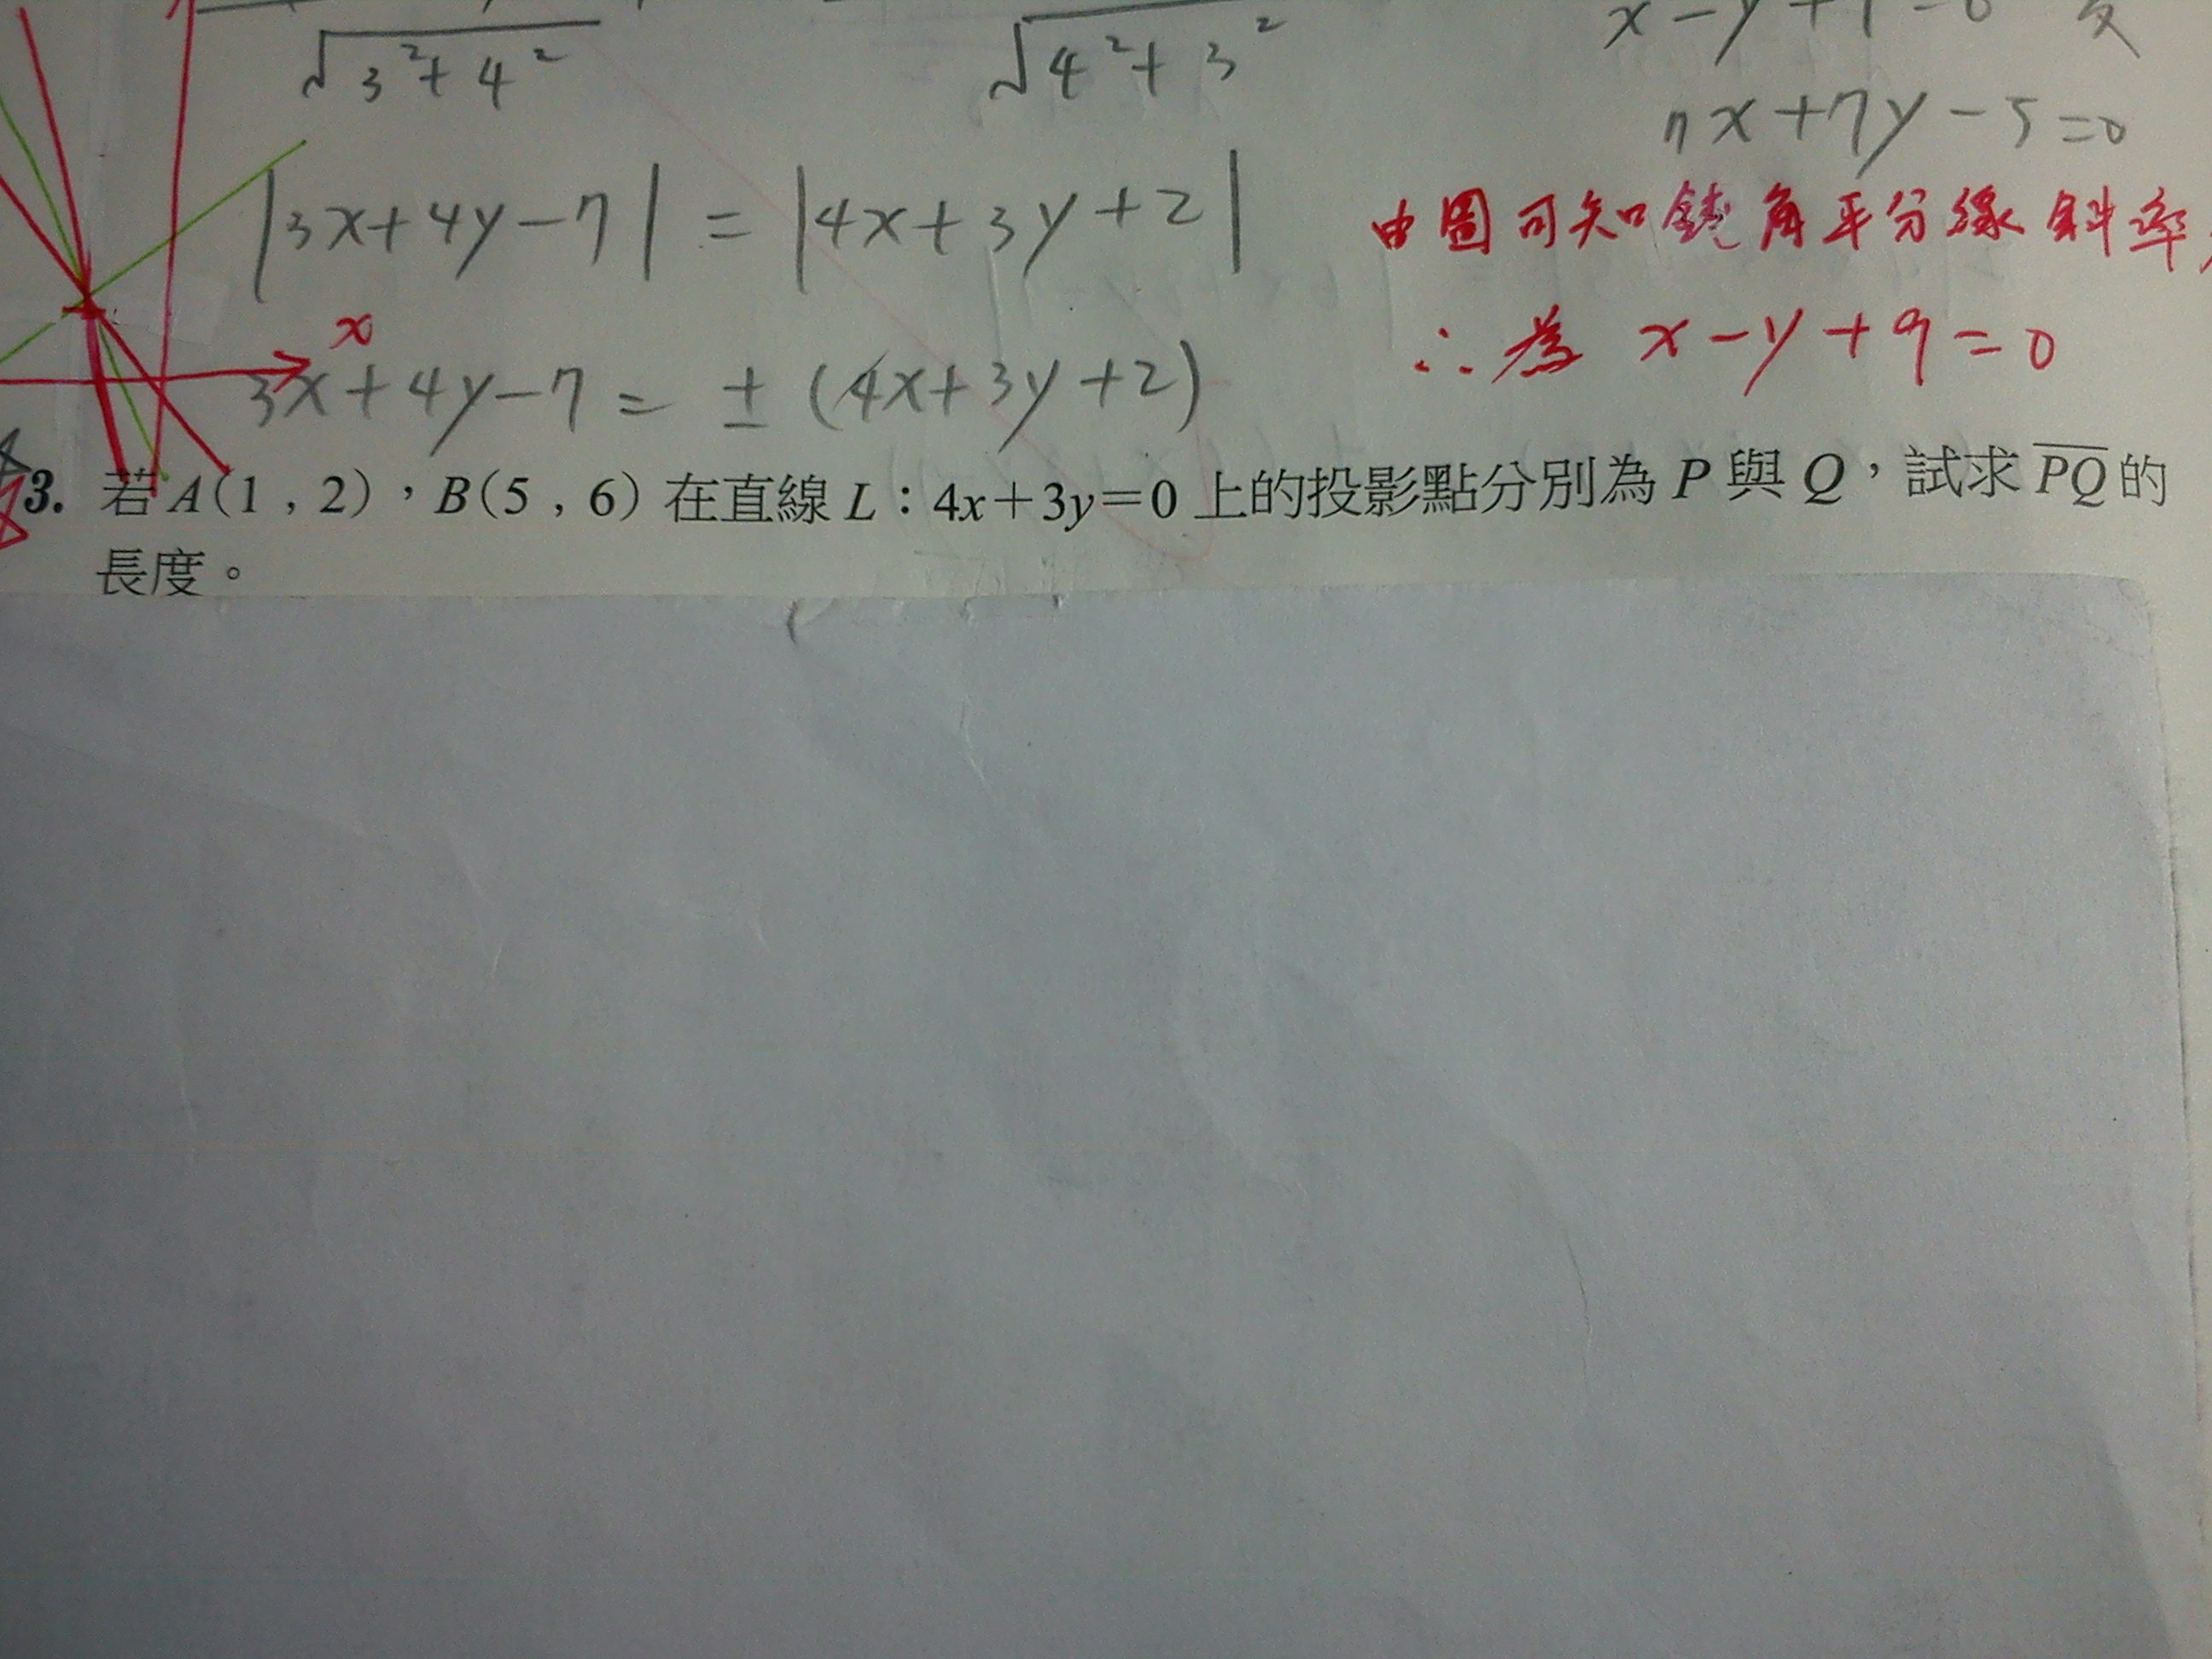 √3²+4² √4²+3²
7x+7y-5=0
|3x+4y-7| = |4x+3y+2|
由圖可知鈍角平分線斜率
x
3x+4y-7= ± (4x+3y+2)
∴為 x-y+9=0
3. 若 A(1 , 2),B(5 , 6) 在直線 L:4x+3y=0 上的投影點分別為 P 與 Q,試求 PQ 的
長度。